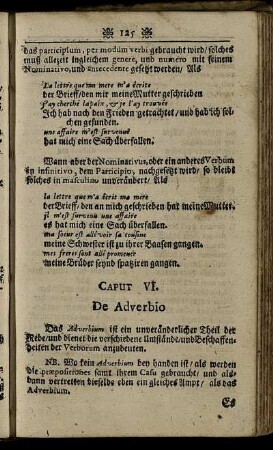 125
das participium, per modum verbi gebraucht wird / solches
muß allezeit ingleichem genere, und numero mit seinem
Nominativo, und antecedente gesetzt werden / Als
La lettre que ma mere m'a écrite
der Brieff / den mir meine Mutter geschrieben
J'ay cherché la paix, & je l'ay trouvée
Ich hab nach den Frieden getrachtet / und hab ich sol-
chen gefunden.
une affaire m'est survenuë
hat mich eine Sach überfallen.
Wann aber der Nominativus, oder ein anderes Verbum
in infinitivo, dem Participio, nachgesetzt wird / so bleibt
solches in masculino unverändert / Als
la lettre que m'a écrit ma mere
der Brieff / den an mich geschrieben hat meine Mutter.
il m'est survenu une affaire
es hat mich eine Sach überfallen.
ma sœur est allé voir sa cousine
meine Schwester ist zu ihrer Baasen gangen.
mes freres sont allé promener
meine Brüder seynd spatziren gangen.
CAPUT VI.
De Adverbio
Das Adverbium ist ein unveränderlicher Theil der
Rede / und dienet die verschiedene Umstände / und Beschaffen-
heiten der Verborum anzudeuten.
NB. Wo kein Adverbium bey handen ist / als werden
die præpositiones samt ihrem Casu gebraucht / und als-
dann vertretten dieselbe eben ein gleiches Ampt / als das
Adverbium.
Es